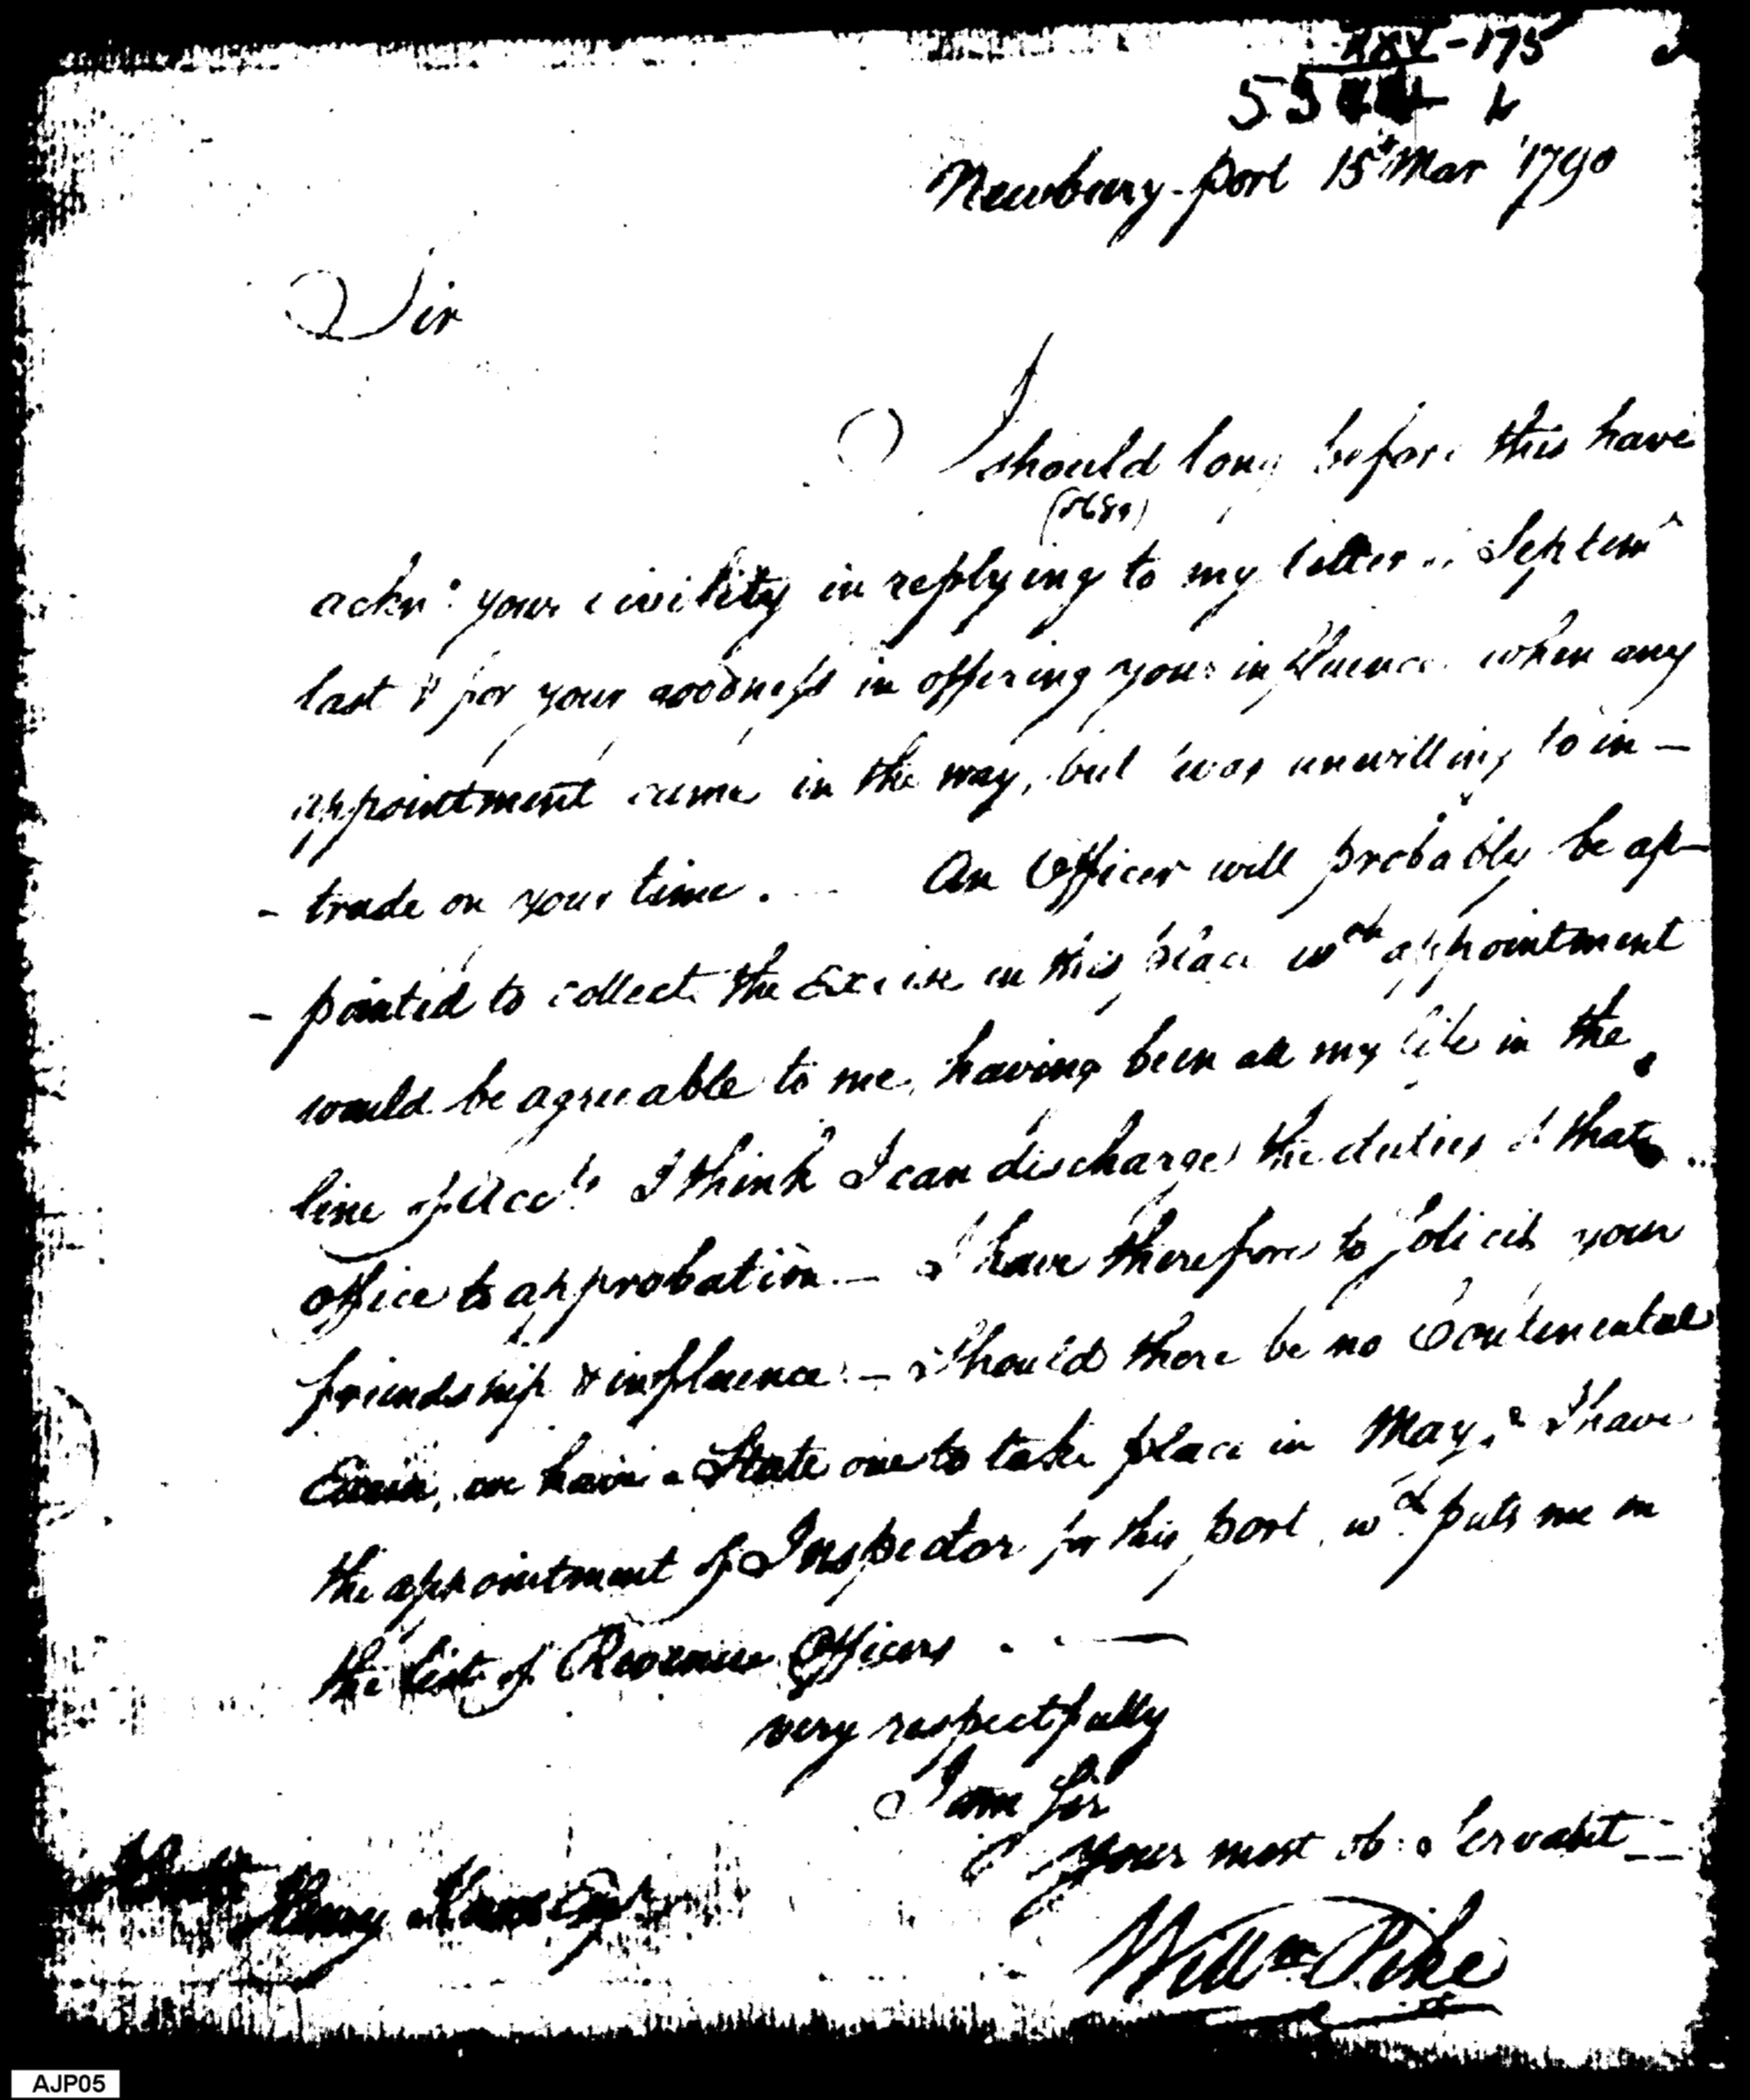 XXV-175
55
Newbury-port 15th Mar 1790
Sir
I should long before this have
ackn: your civility in replying to my letter Septemr
last & for your goodness in offering your influence when any
appointment came in the way, but was unwilling to in-
-trude on your time. — An Officer will probably be ap-
-pointed to collect the Excise in this place wch appointment
would be agreeable to me, having been all my life in the
line of Accts I think I can discharge the duties of that
office to approbation — I have therefore to Solicit your
friendship & influence — Should there be no Continental
Excise, we have a State one to take place in May, I have
the appointment of Inspector for this port, wch puts me in
the list of Revenue Officers . . —
very respectfully
I am Sir
Your most ob: Servant
Henry Knox Esqr
Willm Pike
AJP05